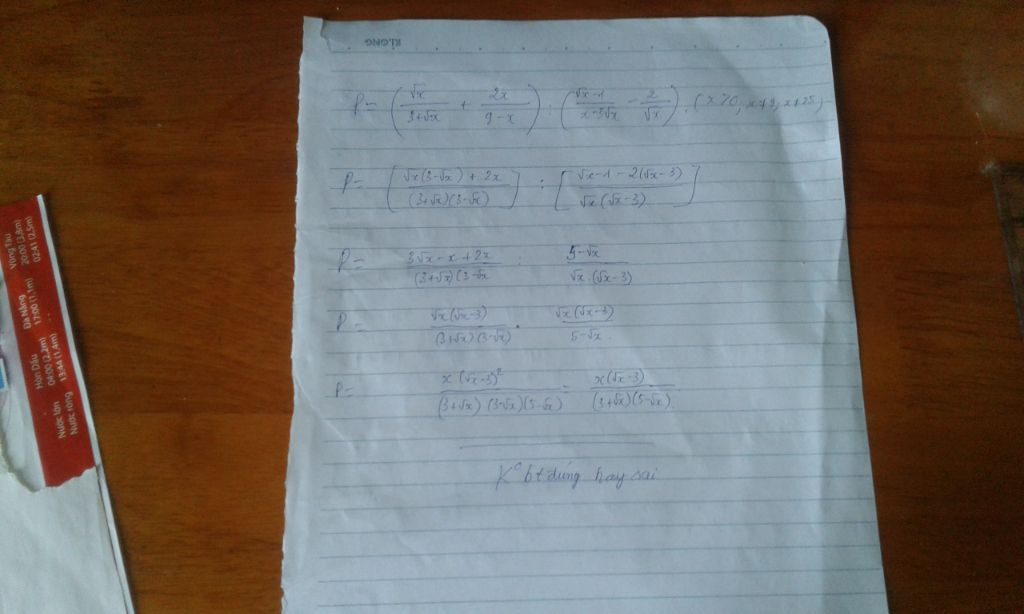 KLONG
P = (√x/(3+√x) + 2x/(9-x)) : ((√x-1)/(x-3√x) - 2/√x). (x>0, x≠9, x≠25)
P = [(√x(3-√x) + 2x)/((3+√x)(3-√x))] : [(√x-1-2(√x-3))/(√x(√x-3))]
P = (3√x-x+2x)/((3+√x)(3-√x) : (5-√x)/(√x.(√x-3))
P = (√x(√x-3))/((3+√x)(3-√x)) . (√x(√x-3))/(5-√x).
P = (x(√x-3)²)/((3+√x)(3-√x)(5-√x)) = (x(√x-3))/((3+√x)(5-√x)).
K° bt đúng hay sai
Vũng Tàu
20:00 (3,8m)
02:41 (2,5m)
Đà Nẵng
17:00 (1,1m)
Hòn Dấu
04:00 (2,2m)
13:44 (1,4m)
Nước lớn
Nước ròng